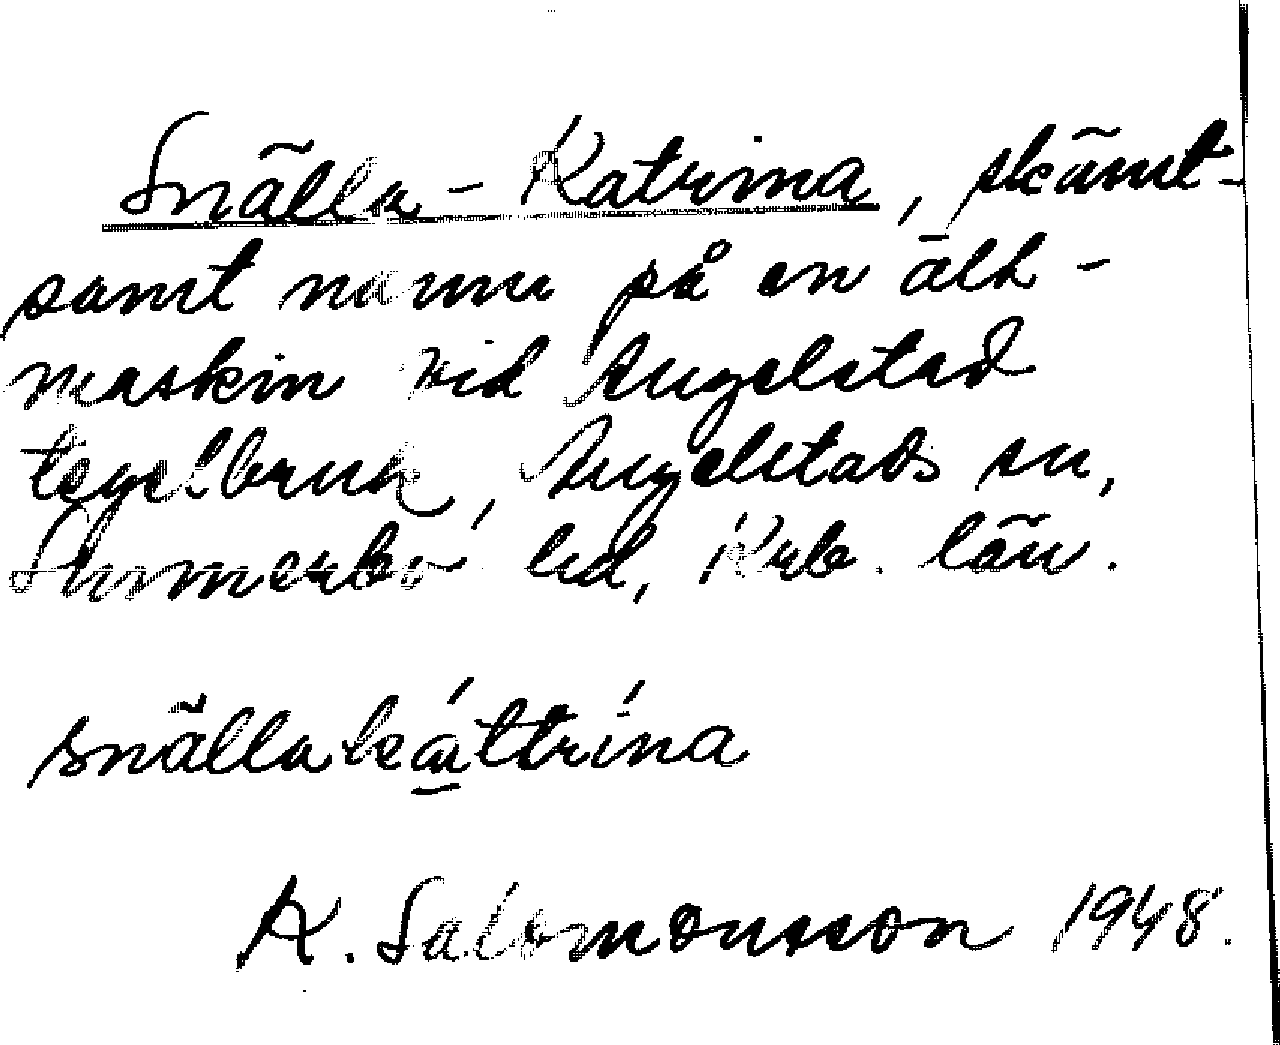 Snälla-Katrina, skämt-
samt namn på en ält-
maskin vid Angelstad
tegelbruk, Angelstads sn,
Sunnerbo hd, Krb. län.
snällakáttrína
K. Salomonsson 1948.